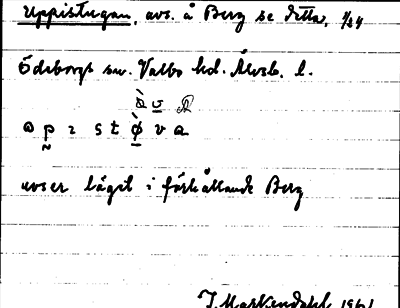 Uppistugan, avs. å Berg se detta, 1/24
Ödeborgs sn. Valbo hd. Älvsb. l.
avser läget i förhållande Berg
J. Markendahl 1961